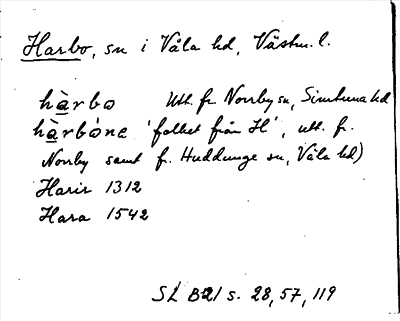 Harbo, sn i Våla hd, Västm. l.
hàrbo Utt. fr Norrby sn, Simtuna hd
hàrbòne 'folket från H', utt. fr.
Norrby samt fr. Huddunge sn, Våla hd)
Harir 1312
Hara 1542
SL B21 s. 28, 57, 119